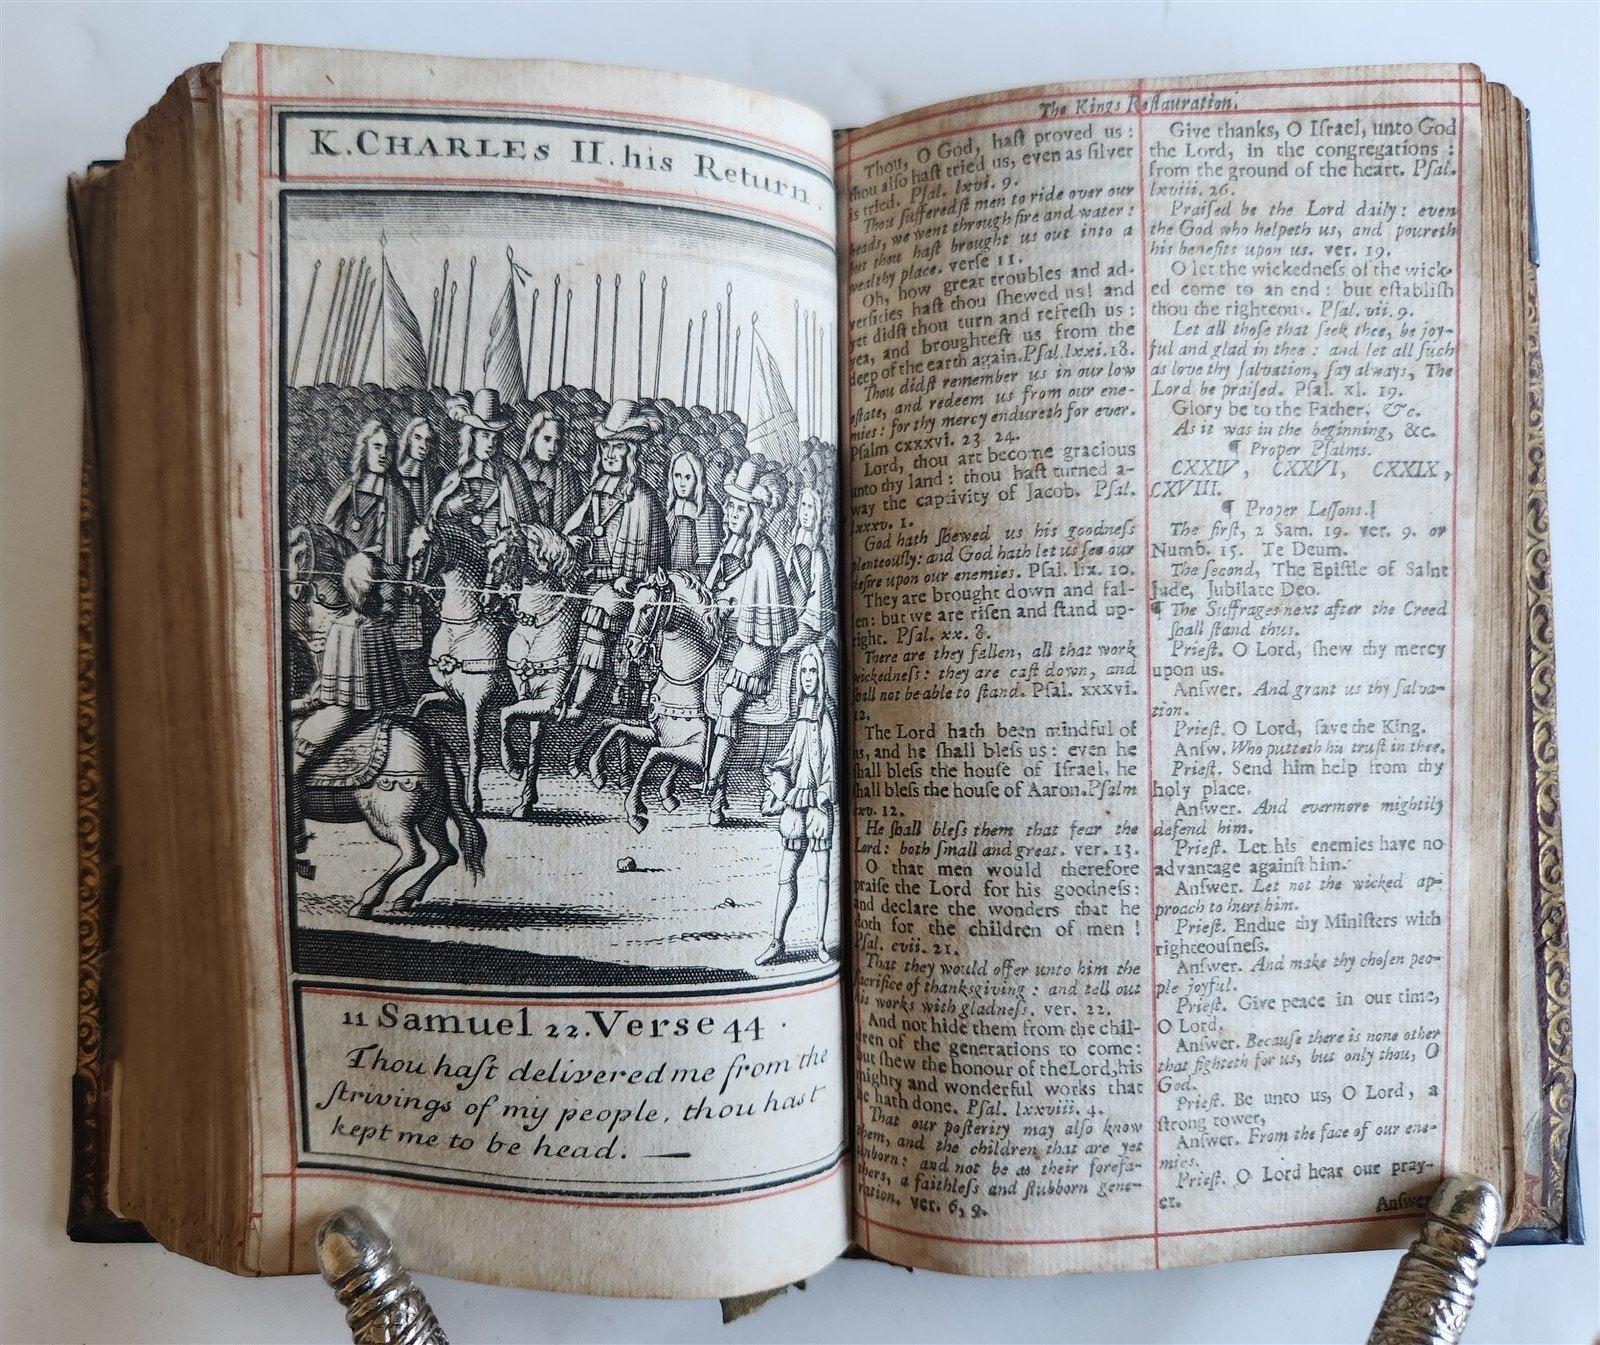 K. CHARLES II. his Return.
11 Samuel 22. Verse 44.
Thou haſt delivered me from the
ſtrivings of my people, thou hast
kept me to be head. —
The Kings Reſtauration.
Thou, O God, haſt proved us:
thou alſo haſt tried us, even as ſilver
is tried. Pſal. lxvi. 9.
Thou ſufferedſt men to ride over our
heads, we went through fire and water:
but thou haſt brought us out into a
wealthy place. verſe 11.
Oh, how great troubles and ad-
verſities haſt thou ſhewed us! and
yet didſt thou turn and refreſh us:
yea, and broughteſt us from the
deep of the earth again. Pſal. lxxi. 18.
Thou didſt remember us in our low
eſtate, and redeem us from our ene-
mies: for thy mercy endureth for ever.
Pſalm cxxxvi. 23 24.
Lord, thou art become gracious
unto thy land: thou haſt turned a-
way the captivity of Jacob. Pſal.
lxxxv. 1.
God hath ſhewed us his goodneſs
plenteouſly: and God hath let us ſee our
deſire upon our enemies. Pſal. lix. 10.
They are brought down and fal-
len: but we are riſen and ſtand up-
right. Pſal. xx. 8.
There are they fallen, all that work
wickedneſs: they are caſt down, and
ſhall not be able to ſtand. Pſal. xxxvi.
12.
The Lord hath been mindful of
us, and he ſhall bleſs us: even he
ſhall bleſs the houſe of Iſrael, he
ſhall bleſs the houſe of Aaron. Pſalm
cxv. 12.
He ſhall bleſs them that fear the
Lord: both ſmall and great. ver. 13.
O that men would therefore
praiſe the Lord for his goodneſs:
and declare the wonders that he
doth for the children of men!
Pſal. cvii. 21.
That they would offer unto him the
ſacrifice of thankſgiving: and tell out
his works with gladneſs. ver. 22.
And not hide them from the chil-
dren of the generations to come:
but ſhew the honour of the Lord, his
mighty and wonderful works that
he hath done. Pſal. lxxviii. 4.
That our poſterity may alſo know
them, and the children that are yet
unborn: and not be as their forefa-
thers, a faithleſs and ſtubborn gene-
ration. ver. 6, 9.
Give thanks, O Iſrael, unto God
the Lord, in the congregations:
from the ground of the heart. Pſal.
lxviii. 26.
Praiſed be the Lord daily: even
the God who helpeth us, and poureth
his benefits upon us. ver. 19.
O let the wickedneſs of the wick-
ed come to an end: but eſtabliſh
thou the righteous. Pſal. vii. 9.
Let all thoſe that ſeek thee, be joy-
ful and glad in thee: and let all ſuch
as love thy ſalvation, ſay always, The
Lord be praiſed. Pſal. xl. 19.
Glory be to the Father, &c.
As it was in the beginning, &c.
¶ Proper Pſalms.
CXXIV, CXXVI, CXXIX,
CXVIII.
¶ Proper Leſſons.
The firſt, 2 Sam. 19. ver. 9. or
Numb. 15. Te Deum.
The ſecond, The Epiſtle of Saint
Jude, Jubilate Deo.
¶ The Suffrages next after the Creed
ſhall ſtand thus.
Prieſt. O Lord, ſhew thy mercy
upon us.
Anſwer. And grant us thy ſalva-
tion.
Prieſt. O Lord, ſave the King.
Anſw. Who putteth his truſt in thee.
Prieſt. Send him help from thy
holy place.
Anſwer. And evermore mightily
defend him.
Prieſt. Let his enemies have no
advantage againſt him.
Anſwer. Let not the wicked ap-
proach to hurt him.
Prieſt. Endue thy Miniſters with
righteouſneſs.
Anſwer. And make thy choſen peo-
ple joyful.
Prieſt. Give peace in our time,
O Lord.
Anſwer. Becauſe there is none other
that fighteth for us, but only thou, O
God.
Prieſt. Be unto us, O Lord, a
ſtrong tower,
Anſwer. From the face of our ene-
mies.
Prieſt. O Lord hear our pray-
er.
Anſwer